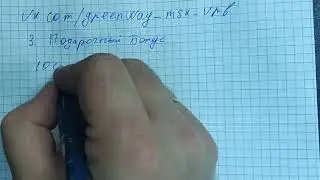 vk com/greenway_msk_vrb
3. Подарочный бонус
100